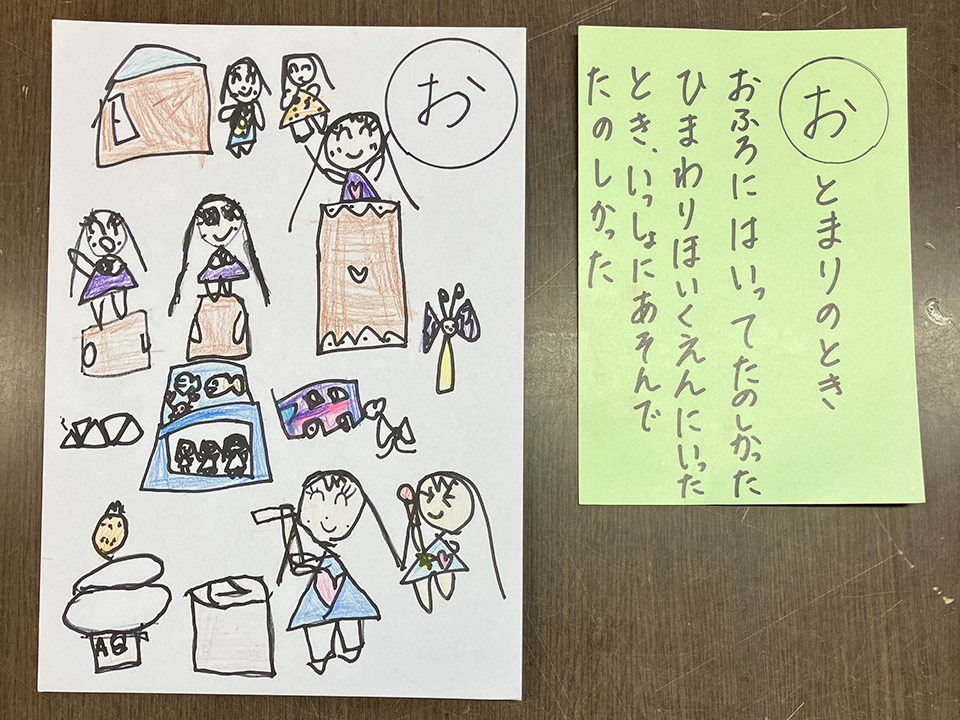 お
おとまりのとき、
おふろにはいってたのしかった
ひまわりほいくえんにいった
とき、いっしょにあそんで
たのしかった